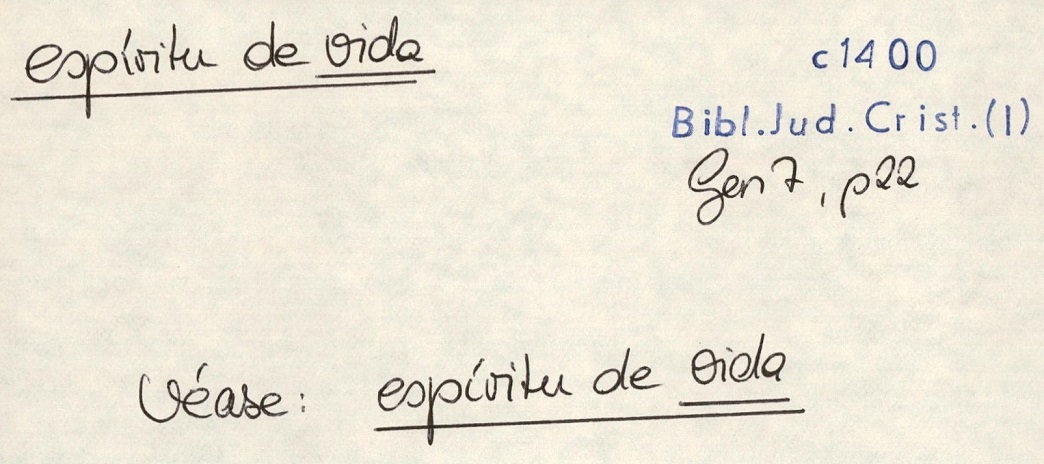 espíritu de vida
c1400
Bibl.Jud.Crist.(I)
Gen 7, p22
Véase: espíritu de vida